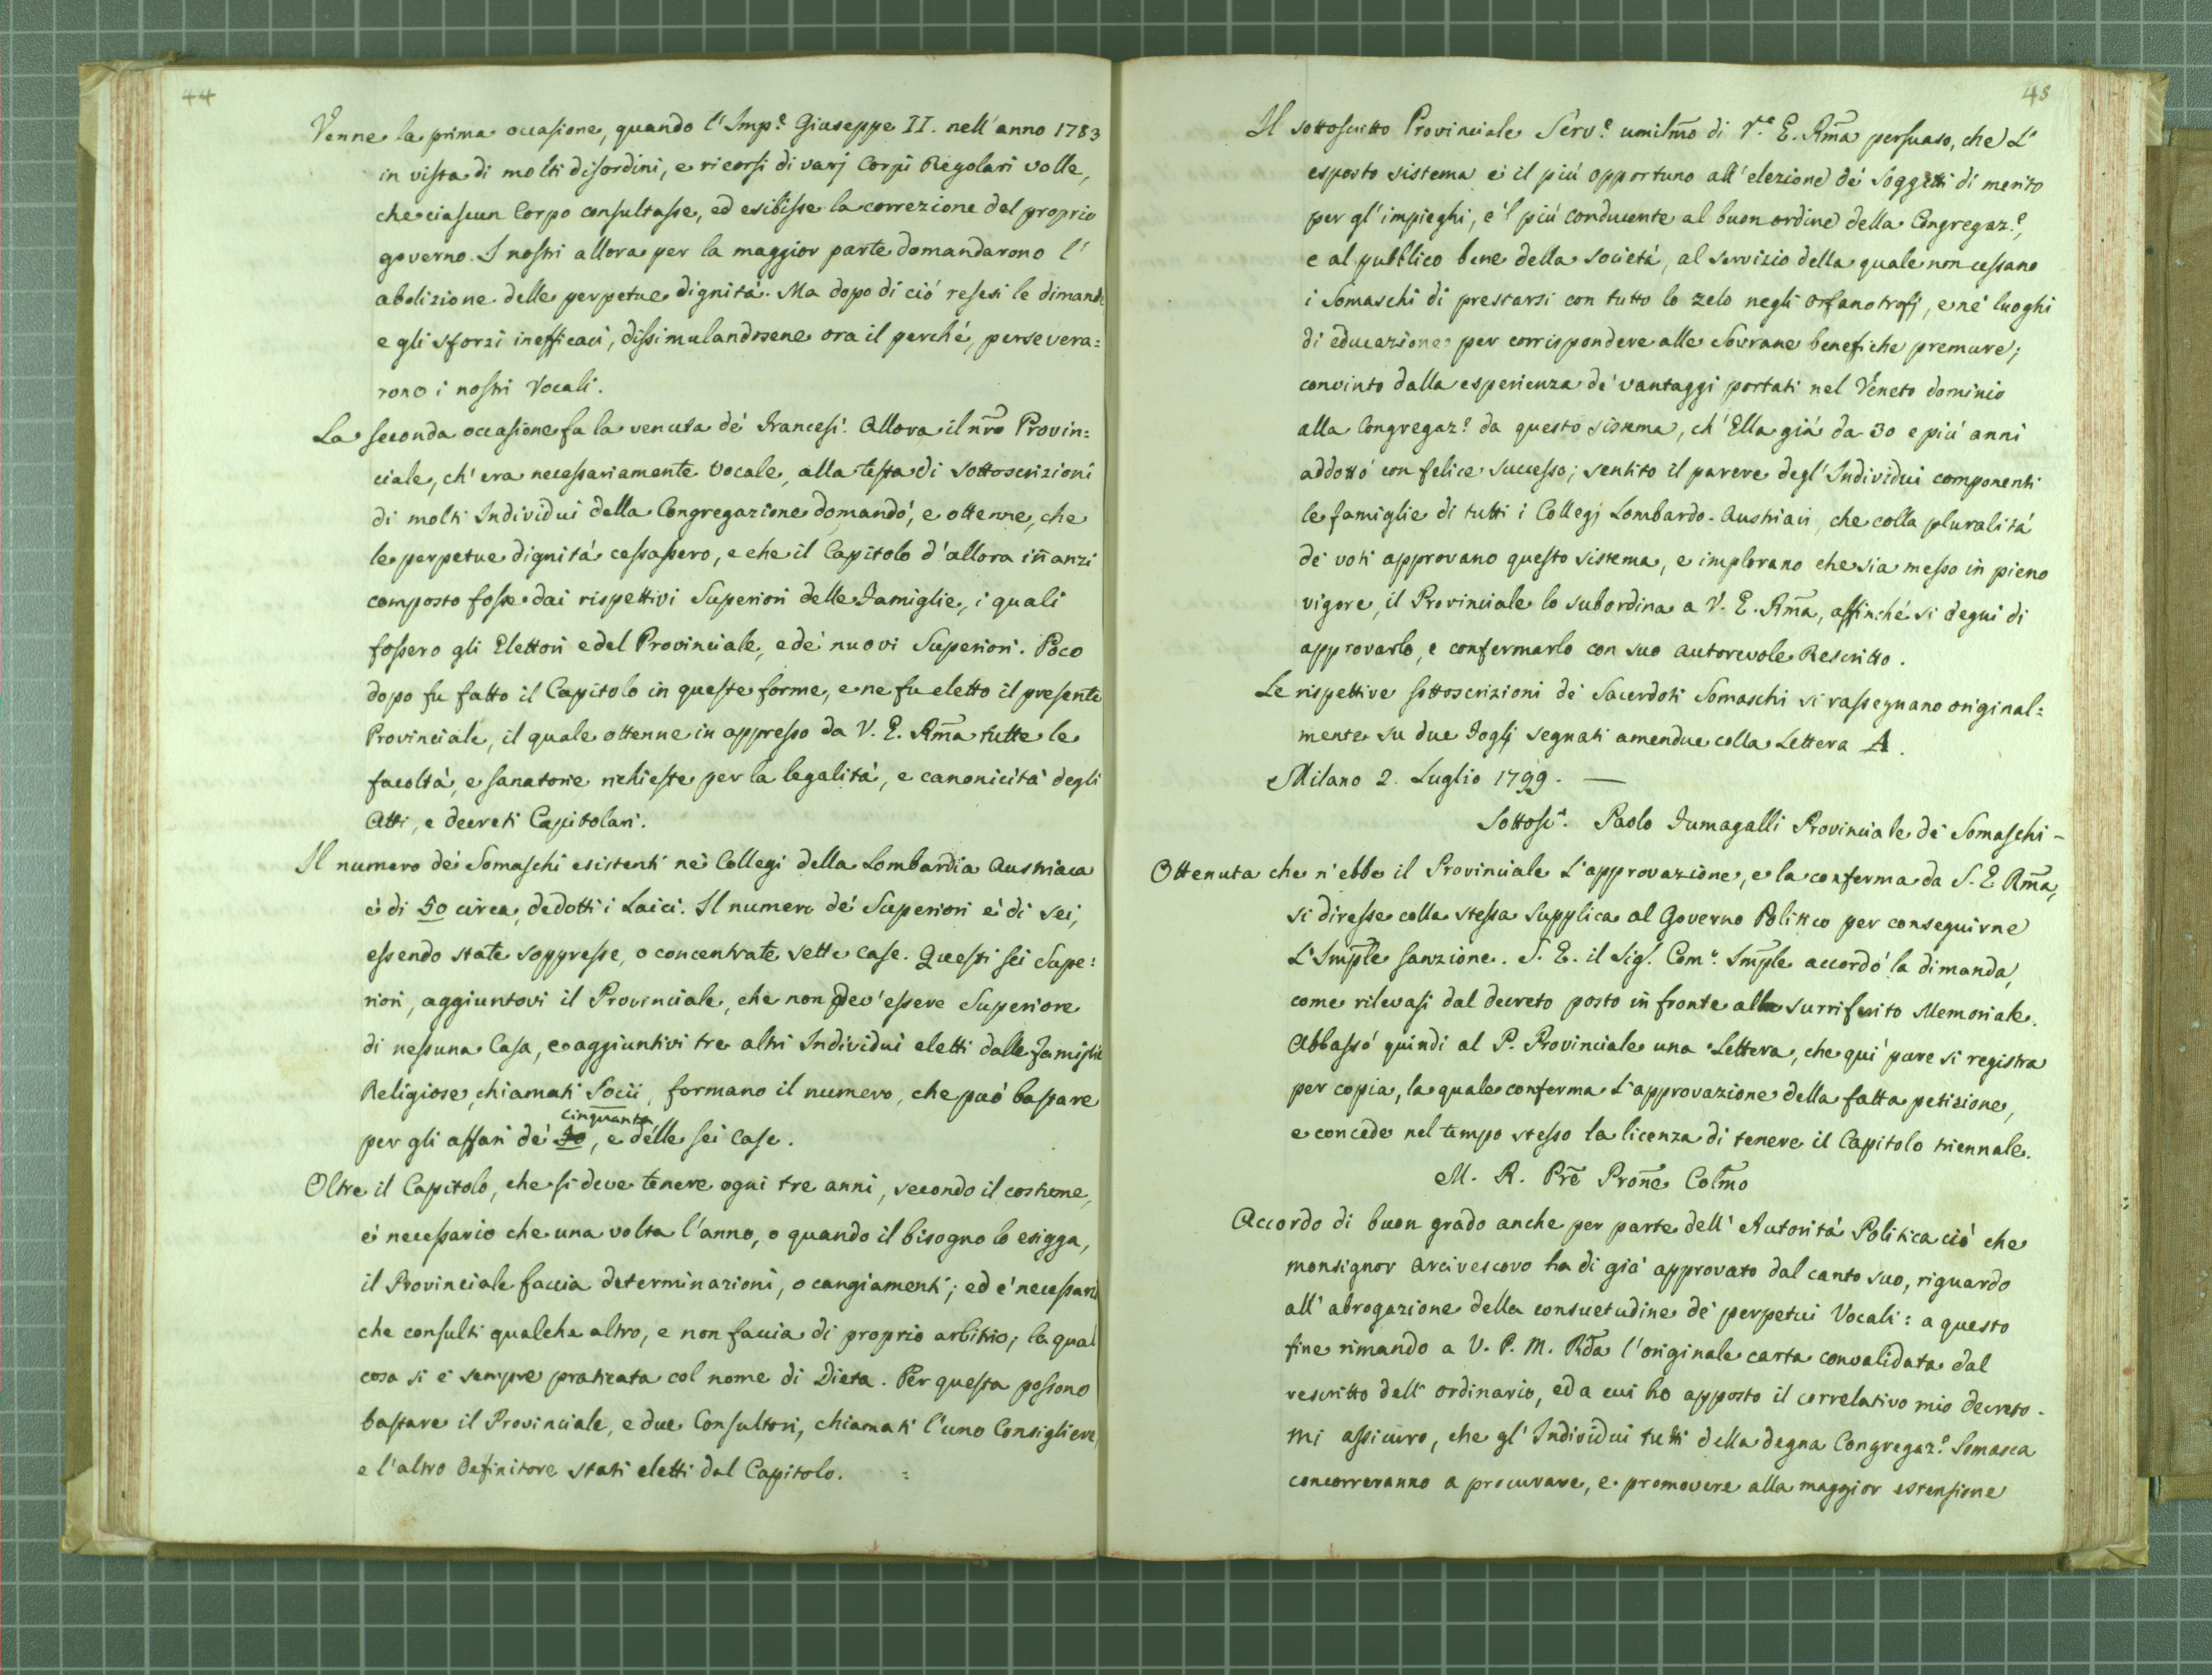 44
Venne la prima occasione, quando l'Imp.e Giuseppe II. nell'anno 1783
in vista di molti disordini, e ricorsi di varj Corpi Regolari volle,
che ciascun Corpo consultasse, ed esibisse la correzione del proprio
governo. I nostri allora per la maggior parte domandarono l'
abolizione delle perpetue dignitá. Ma dopo di ció resesi le dimande
e gli sforzi inefficaci, dissimulandosene ora il perché, persevera=
rono i nostri Vocali.
La seconda occasione fu la venuta de' Francesi. Allora il nr̃o Provin=
ciale, ch'era necessariamente Vocale, alla testa di sottoscrizioni
di molti Individui della Congregazione domandó, e ottenne, che
le perpetue dignitá cessassero, e che il Capitolo d'allora iñanzi
composto fosse dai rispettivi Superiori delle Famiglie, i quali
fossero gli Elettori e del Provinciale, e de' nuovi Superiori. Poco
dopo fu fatto il Capitolo in queste forme, e ne fu eletto il presente
Provinciale, il quale ottenne in appresso da V. E. Rm̃a tutte le
facoltá, e sanatorie richieste per la legalitá, e canonicitá degli
Atti, e decreti Capitolari.
Il numero de' Somaschi esistenti ne' Collegi della Lombardia Austriaca
é di 50 circa, dedotti i Laici. Il numero de' Superiori é di sei,
essendo state soppresse, o concentrate sette case. Questi sei Supe=
riori, aggiuntovi il Provinciale, che non dev'essere Superiore
di nessuna Casa, e aggiuntivi tre altri Individui eletti dalle Famiglie
Religiose, chiamati Socii, formano il numero, che puó bastare
cinquanta
per gli affari de' 50, e delle sei Case.
Oltre il Capitolo, che si deve tenere ogni tre anni, secondo il costume,
é necessario che una volta l'anno, o quando il bisogno lo esigga,
il Provinciale faccia determinazioni, o cangiamenti; ed é necessario
che consulti qualche altro, e non faccia di proprio arbitrio; la qual
cosa si é sempre praticata col nome di Dieta. Per questa possono
bastare il Provinciale, e due Consultori, chiamati l'uno Consigliere,
e l'altro Definitore stati eletti dal Capitolo. =
45
Il sottoscritto Provinciale Serv.e umilm̃o di V.a E. Rm̃a persuaso, che l'
esposto sistema é il piú opportuno all'elezione de' soggetti di merito
per gl'impieghi, e 'l piú conducente al buon ordine della Congregaz.e,
e al pubblico bene della societá, al servizio della quale non cessano
i Somaschi di prestarsi con tutto lo zelo negli Orfanotrofj, e ne' luoghi
di educazione per corrispondere alle Sovrane benefiche premure;
convinto dalla esperienza de' vantaggi portati nel Veneto dominio
alla Congregaz.e da questo sistema, ch'Ella giá da 30 e piú anni
addottó con felice successo; sentito il parere degl'Individui componenti
le famiglie di tutti i Collegj Lombardo-Austriaci, che colla pluralitá
de' voti approvano questo sistema, e implorano che sia messo in pieno
vigore, il Provinciale lo subordina a V. E. Rm̃a, affinché si degni di
approvarlo, e confermarlo con suo autorevole Rescritto.
Le rispettive sottoscrizioni de' Sacerdoti Somaschi si rassegnano original=
mente su due Foglj segnati amendue colla Lettera A.
Milano 2. Luglio 1799. —
Sottosc.o. Paolo Fumagalli Provinciale de' Somaschi -
Ottenuta che n'ebbe il Provinciale l'approvazione, e la conferma da S. E Rm̃a,
si diresse colla stessa supplica al Governo Politico per conseguirne
l'Imp̃le sanzione. S. E. il Sig.r Com.o Imp̃le accordó la dimanda,
come rilevasi dal decreto posto in fronte alla surriferito Memoriale.
Abbassó quindi al P. Provinciale una Lettera, che quí pure si registra
per copia, la quale conferma l'approvazione della fatta petizione,
e concede nel tempo stesso la licenza di tenere il Capitolo triennale.
M. R. Pr̃e Proñe Colm̃o
Accordo di buon grado anche per parte dell'Autoritá Politica ció che
monsignor Arcivescovo ha di giá approvato dal canto suo, riguardo
all'abrogazione della consuetudine de' perpetui Vocali: a questo
fine rimando a V. P. M. Rd̃a l'originale carta convalidata dal
rescritto dell'ordinario, ed a cui ho apposto il correlativo mio decreto.
Mi assicuro, che gl'Individui tutti della degna Congregaz.e Somasca
concorreranno a procurare, e promovere alla maggior estensione